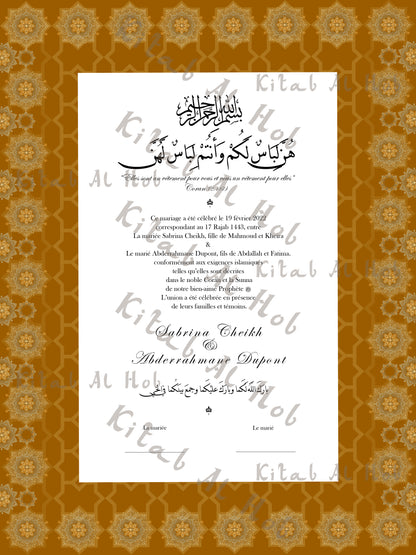 بسم الله الرحمن الرحيم
هُنَّ لِبَاسٌ لَكُمْ وَأَنْتُمْ لِبَاسٌ لَهُنَّ
"Elles sont un vêtement pour vous et vous un vêtement pour elles"
Coran
Ce mariage a été célébré le 19 février 2022
correspondant au 17 Rajab 1443, entre
La mariée Sabrina Cheikh, fille de Mahmoud et Kheira
&
Le marié Abderrahmane Dupont, fils de Abdallah et Fatima.
conformément aux exigences islamiques
telles qu'elles sont décrites
dans le noble Coran et la Sunna
de notre bien-aimé Prophète ﷺ
L'union a été célébrée en présence
de leurs familles et témoins.
Sabrina Cheikh
&
Abderrahmane Dupont
بارك الله لكما وبارك عليكما وجمع بينكما في الخير
La mariée Le marié
Kitab Al Hob
Kitab Al Hob
Kitab Al Hob
Kitab Al Hob
Kitab Al Hob